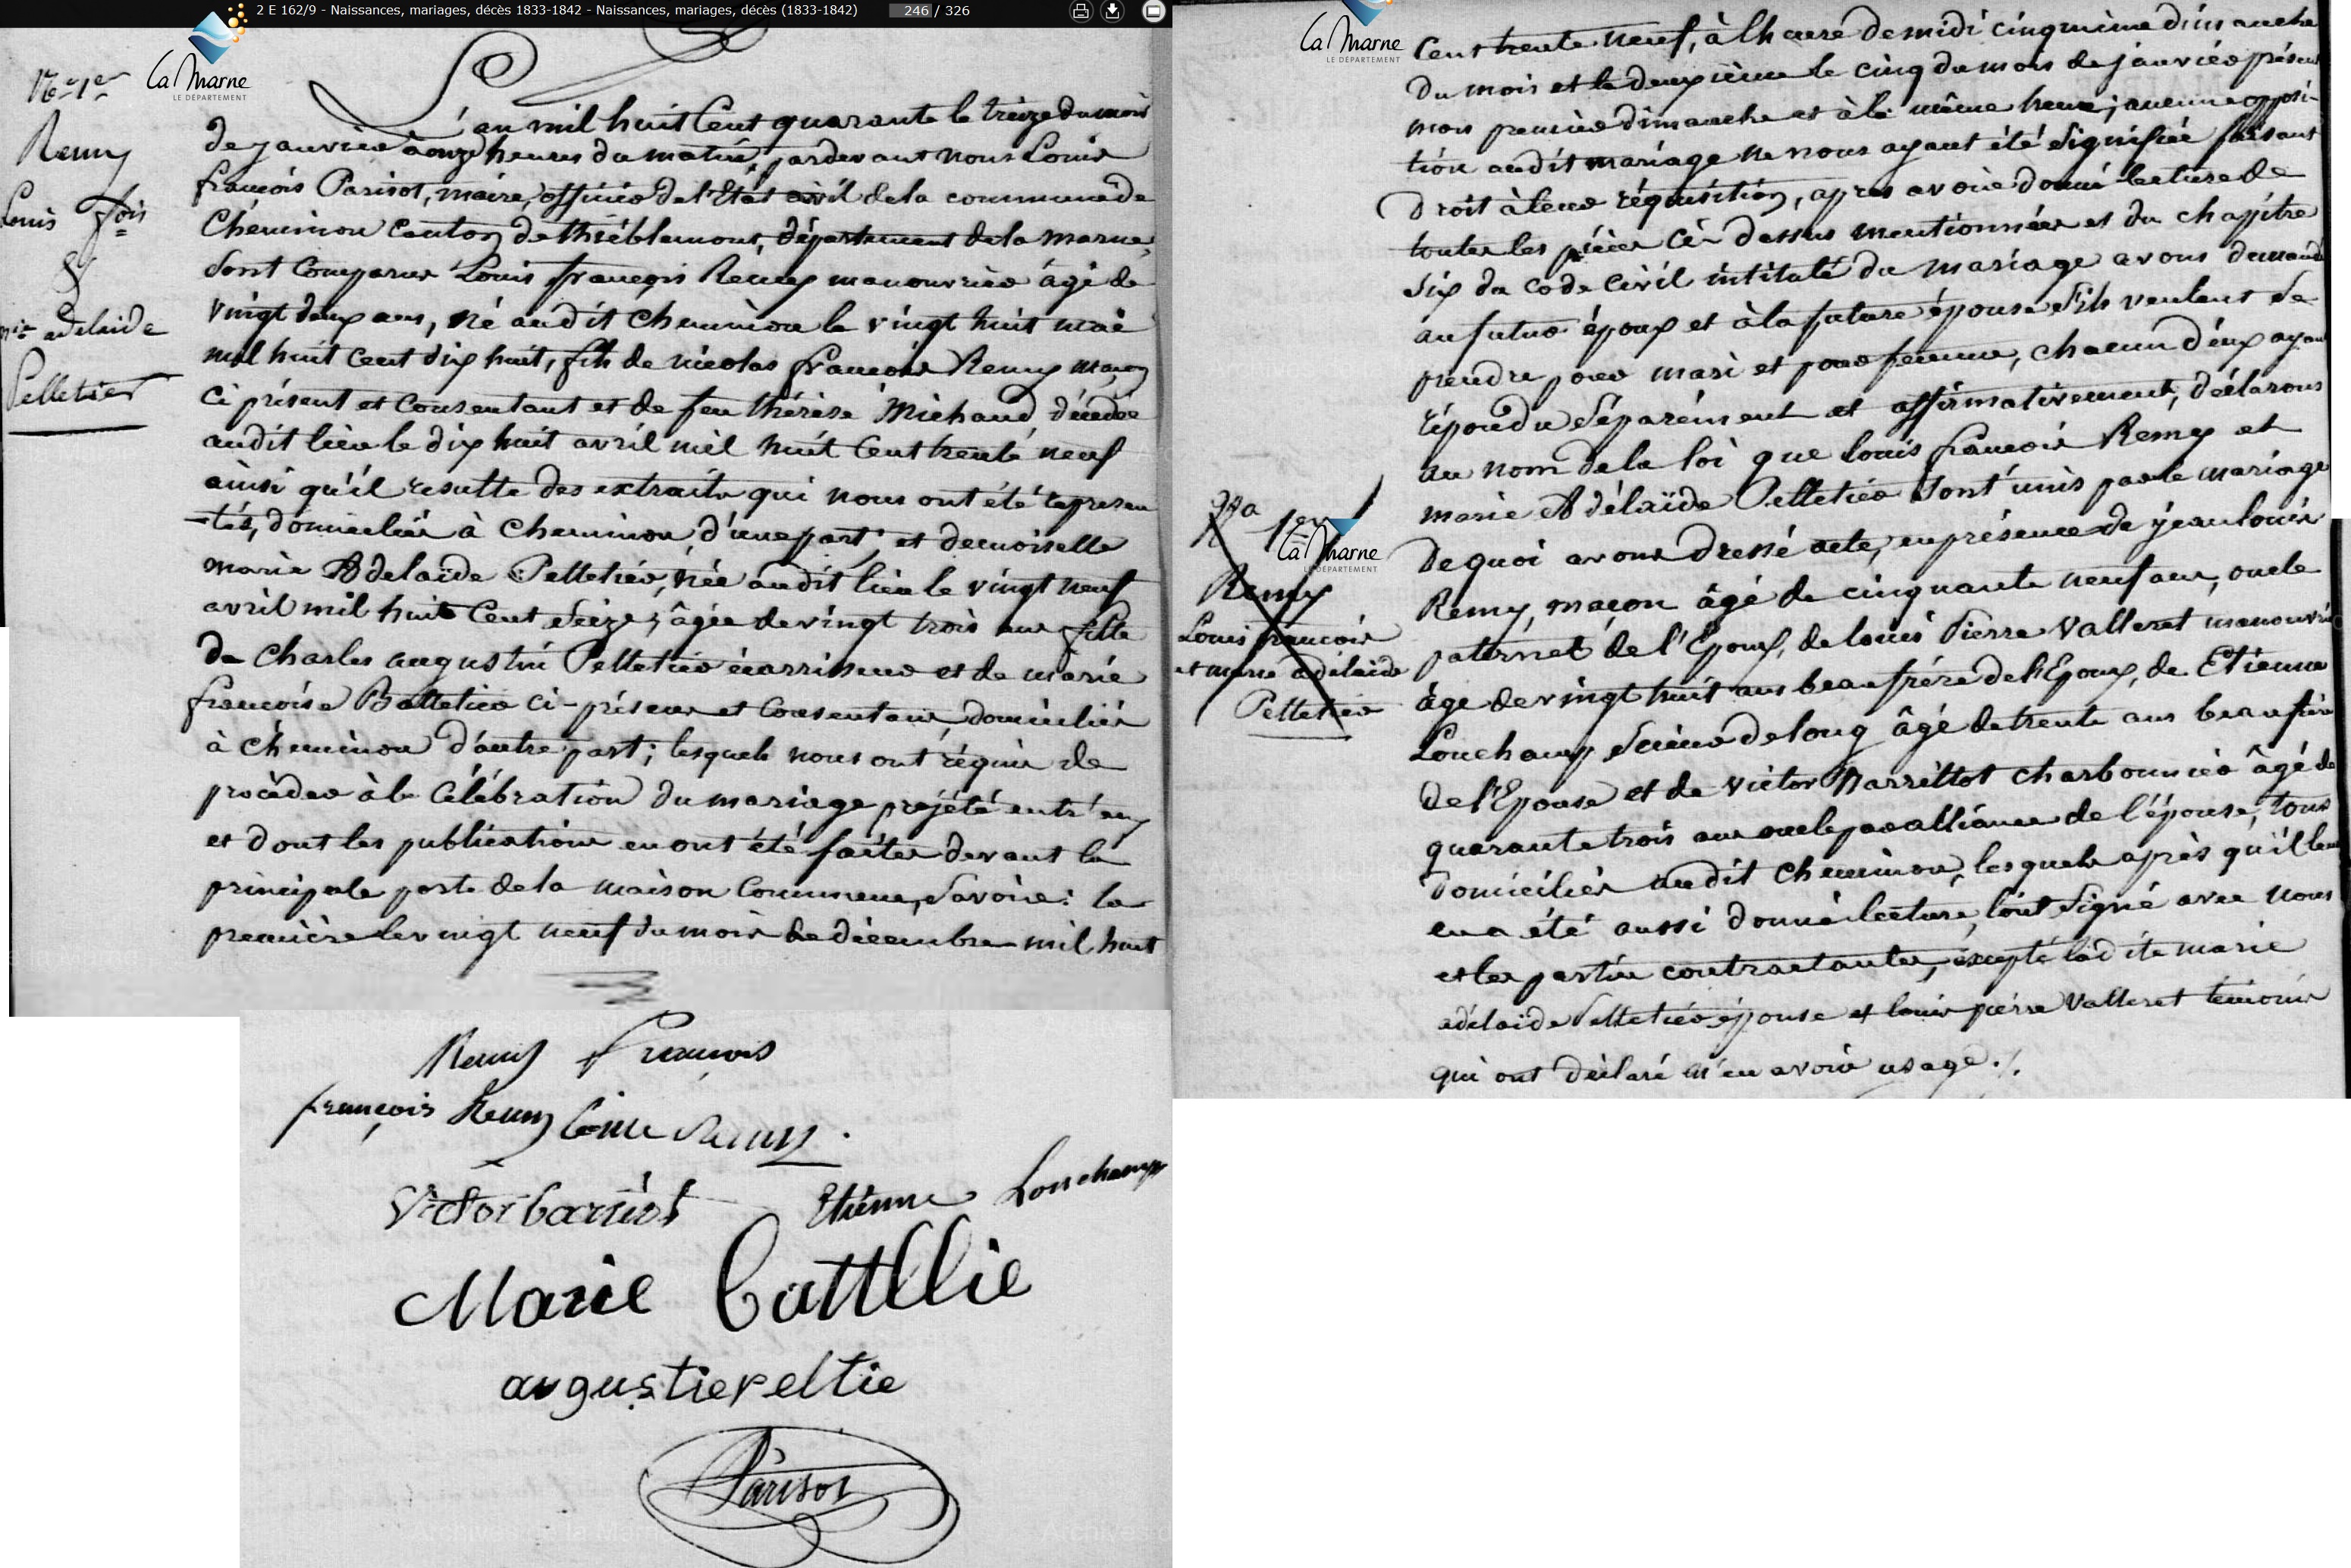 2 E 162/9 - Naissances, mariages, décès 1833-1842 - Naissances, mariages, décès (1833-1842) 246 / 326
La Marne
LE DÉPARTEMENT
No 1er
Remy
Louis fois
&
mie adelaide
Pelletier
L'an mil huit Cent quarante le treize du mois
de janvier à onze heures du matin, pardevant nous Louis
françois Parisot, maire, officier de l'Etat civil de la commune de
Cheminon Canton de thiéblemont, département de la marne,
Sont Comparus Louis françois Rémy manouvrier âgé de
vingt deux ans, né audit Cheminon le vingt huit mai
mil huit Cent dix huit, fils de nicolas françois Remy maçon
ci présent et Consentant et de feu thérèse Michaud, décédée
audit lieu le dix huit avril mil huit Cent trente neuf
ainsi qu'il resulte des extraits qui nous ont été représen
-tés, domiciliés à Cheminon, d'une part, et demoiselle
marie Adelaïde Pelletier, née audit lieu le vingt neuf
avril mil huit Cent Seize, âgée de vingt trois ans fille
de Charles augustin Pelletier écarrisseur et de marie
françoise Battelier ci-présens et Consentans, domiciliés
à Cheminon d'autre part; lesquels nous ont réquis de
procéder à la Célébration du mariage projété entr'eux
et dont les publications en ont été faites devant la
principale porte de la maison Commune, Savoir: la
première le vingt neuf du mois de décembre mil huit
Remy françois
françois Remy Louis Remy
Victor barriot Etienne Lonchamp
Marie Cattllie
augustiepeltie
Parisot
La Marne
LE DÉPARTEMENT
Cent trente neuf, à l'heure de midi cinquième dimanche
du mois et la deuxième le cinq du mois de janvier présent
mois premier dimanche et à la même heure; aucune opposi-
tion audit mariage ne nous ayant été Signifiée faisant
Droit à leur réquisition, après avoir donné lecture de
toutes les pièces Ci-dessus mentionnées et du chapitre
Six du Code Civil intitulé du mariage avons demandé
au futur époux et à la future épouse s'ils veulent se
prendre pour mari et pour femme, chacun d'eux ayant
répondu Séparément et affirmativement, déclarons
au nom de la loi que louis françois Remy et
marie Adélaïde Pelletier Sont unis par le mariage
De quoi avons dressé acte, en présence de jean louis
Remy, maçon âgé de cinquante neuf ans, oncle
paternel de l'Epoux, de louis Pierre Valleret manouvrier
âge de vingt huit ans beaufrére de l'Epoux, de Etienne
Lonchamp Scieur de long âgé de trente ans beaufrère
de l'Epouse et de Victor Barrittot charbonnier âgé de
quarante trois ans oncle par alliance de l'épouse, tous
domiciliés audit Cheminon, lesquels après qu'il leur
en a été aussi donné lecture, l'ont Signé avec nous
et les parties contractantes, excepté ladite marie
adélaïde Pelletier épouse et louis pierre Valleret témoins
qui ont déclaré n'en avoir usage ./.
1er
La Marne
LE DÉPARTEMENT
Remy
Louis françois
et marie adélaide
Pelletier